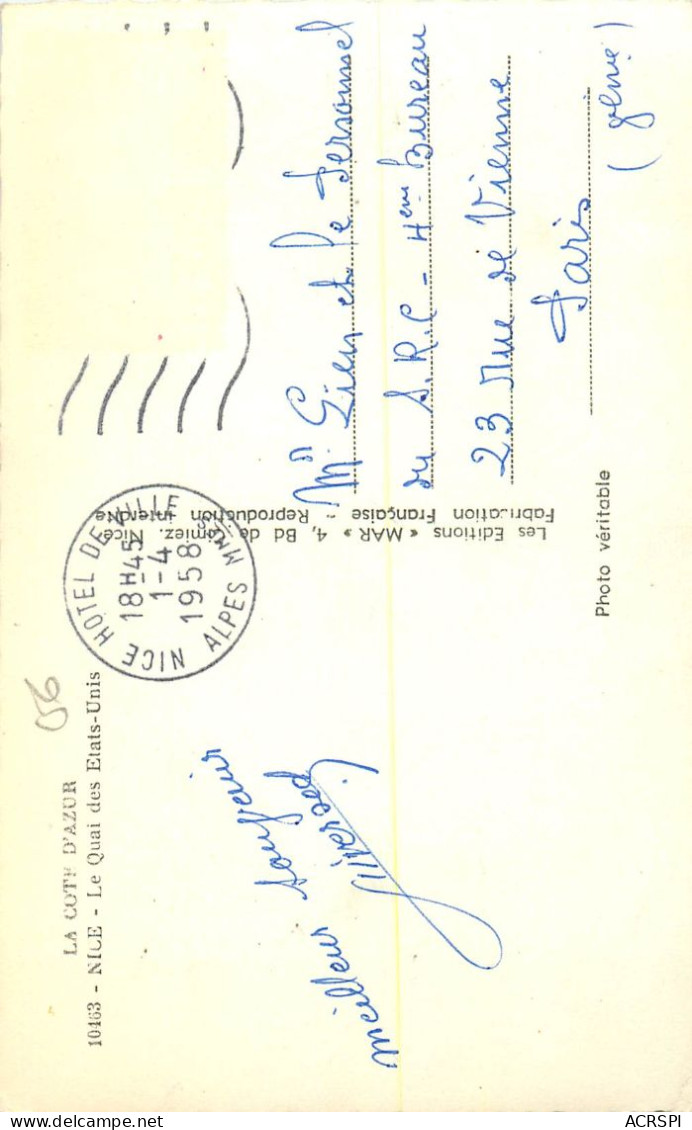 LA COTE D'AZUR
10463 - NICE - Le Quai des Etats-Unis
56
meilleur souvenir
NICE HOTEL DE VILLE
18H45
1-4
1958
ALPES MMES
Les Editions « MAR » 4, Bd de Cimiez. Nice.
Fabrication Française - Reproduction interdite
Mr et le Personnel
du S.R.C - 4eme Bureau
23 Rue de Vienne
Paris
(8eme)
Photo véritable
ACRSPI